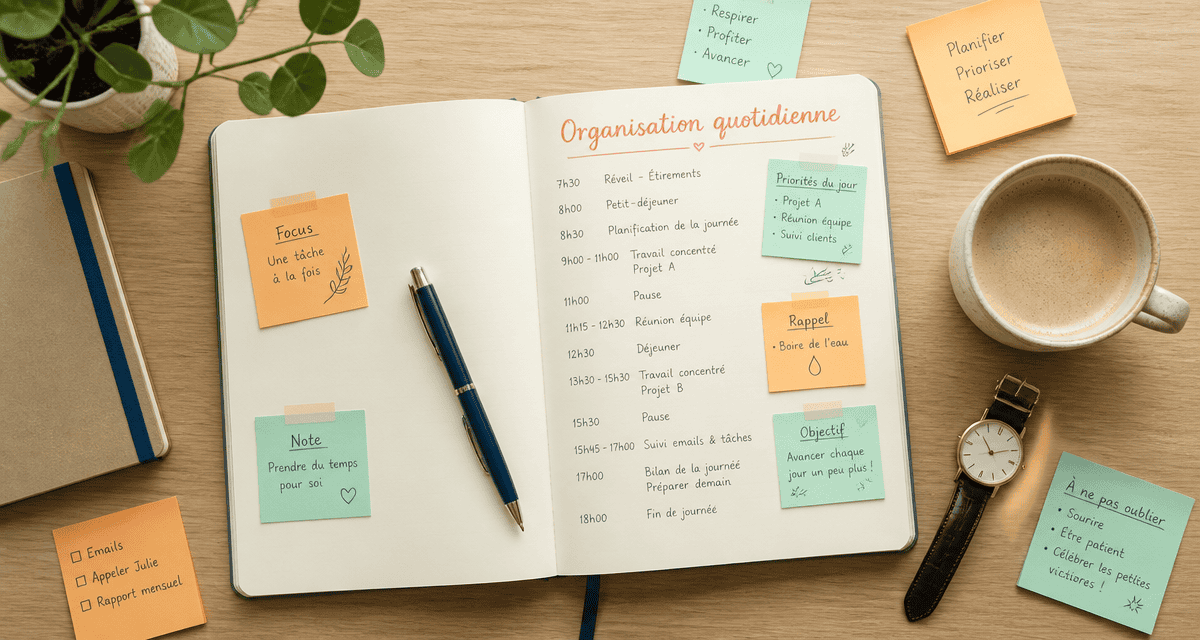 Respirer
• Profiter
• Avancer
Planifier
Prioriser
Réaliser
Organisation quotidienne
7h30 Réveil - Étirements
8h00 Petit-déjeuner
8h30 Planification de la journée
9h00 - 11h00 Travail concentré
Projet A
11h00 Pause
11h15 - 12h30 Réunion équipe
12h30 Déjeuner
13h30 - 15h30 Travail concentré
Projet B
15h30 Pause
15h45 - 17h00 Suivi emails & tâches
17h00 Bilan de la journée
Préparer demain
18h00 Fin de journée
Priorités du jour
• Projet A
• Réunion équipe
• Suivi clients
Rappel
• Boire de l'eau
Objectif
Avancer chaque
jour un peu plus !
Focus
Une tâche
à la fois
Note
Prendre du temps
pour soi
Emails
Appeler Julie
Rapport mensuel
À ne pas oublier
• Sourire
• Être patient
• Célébrer les petites
victoires !